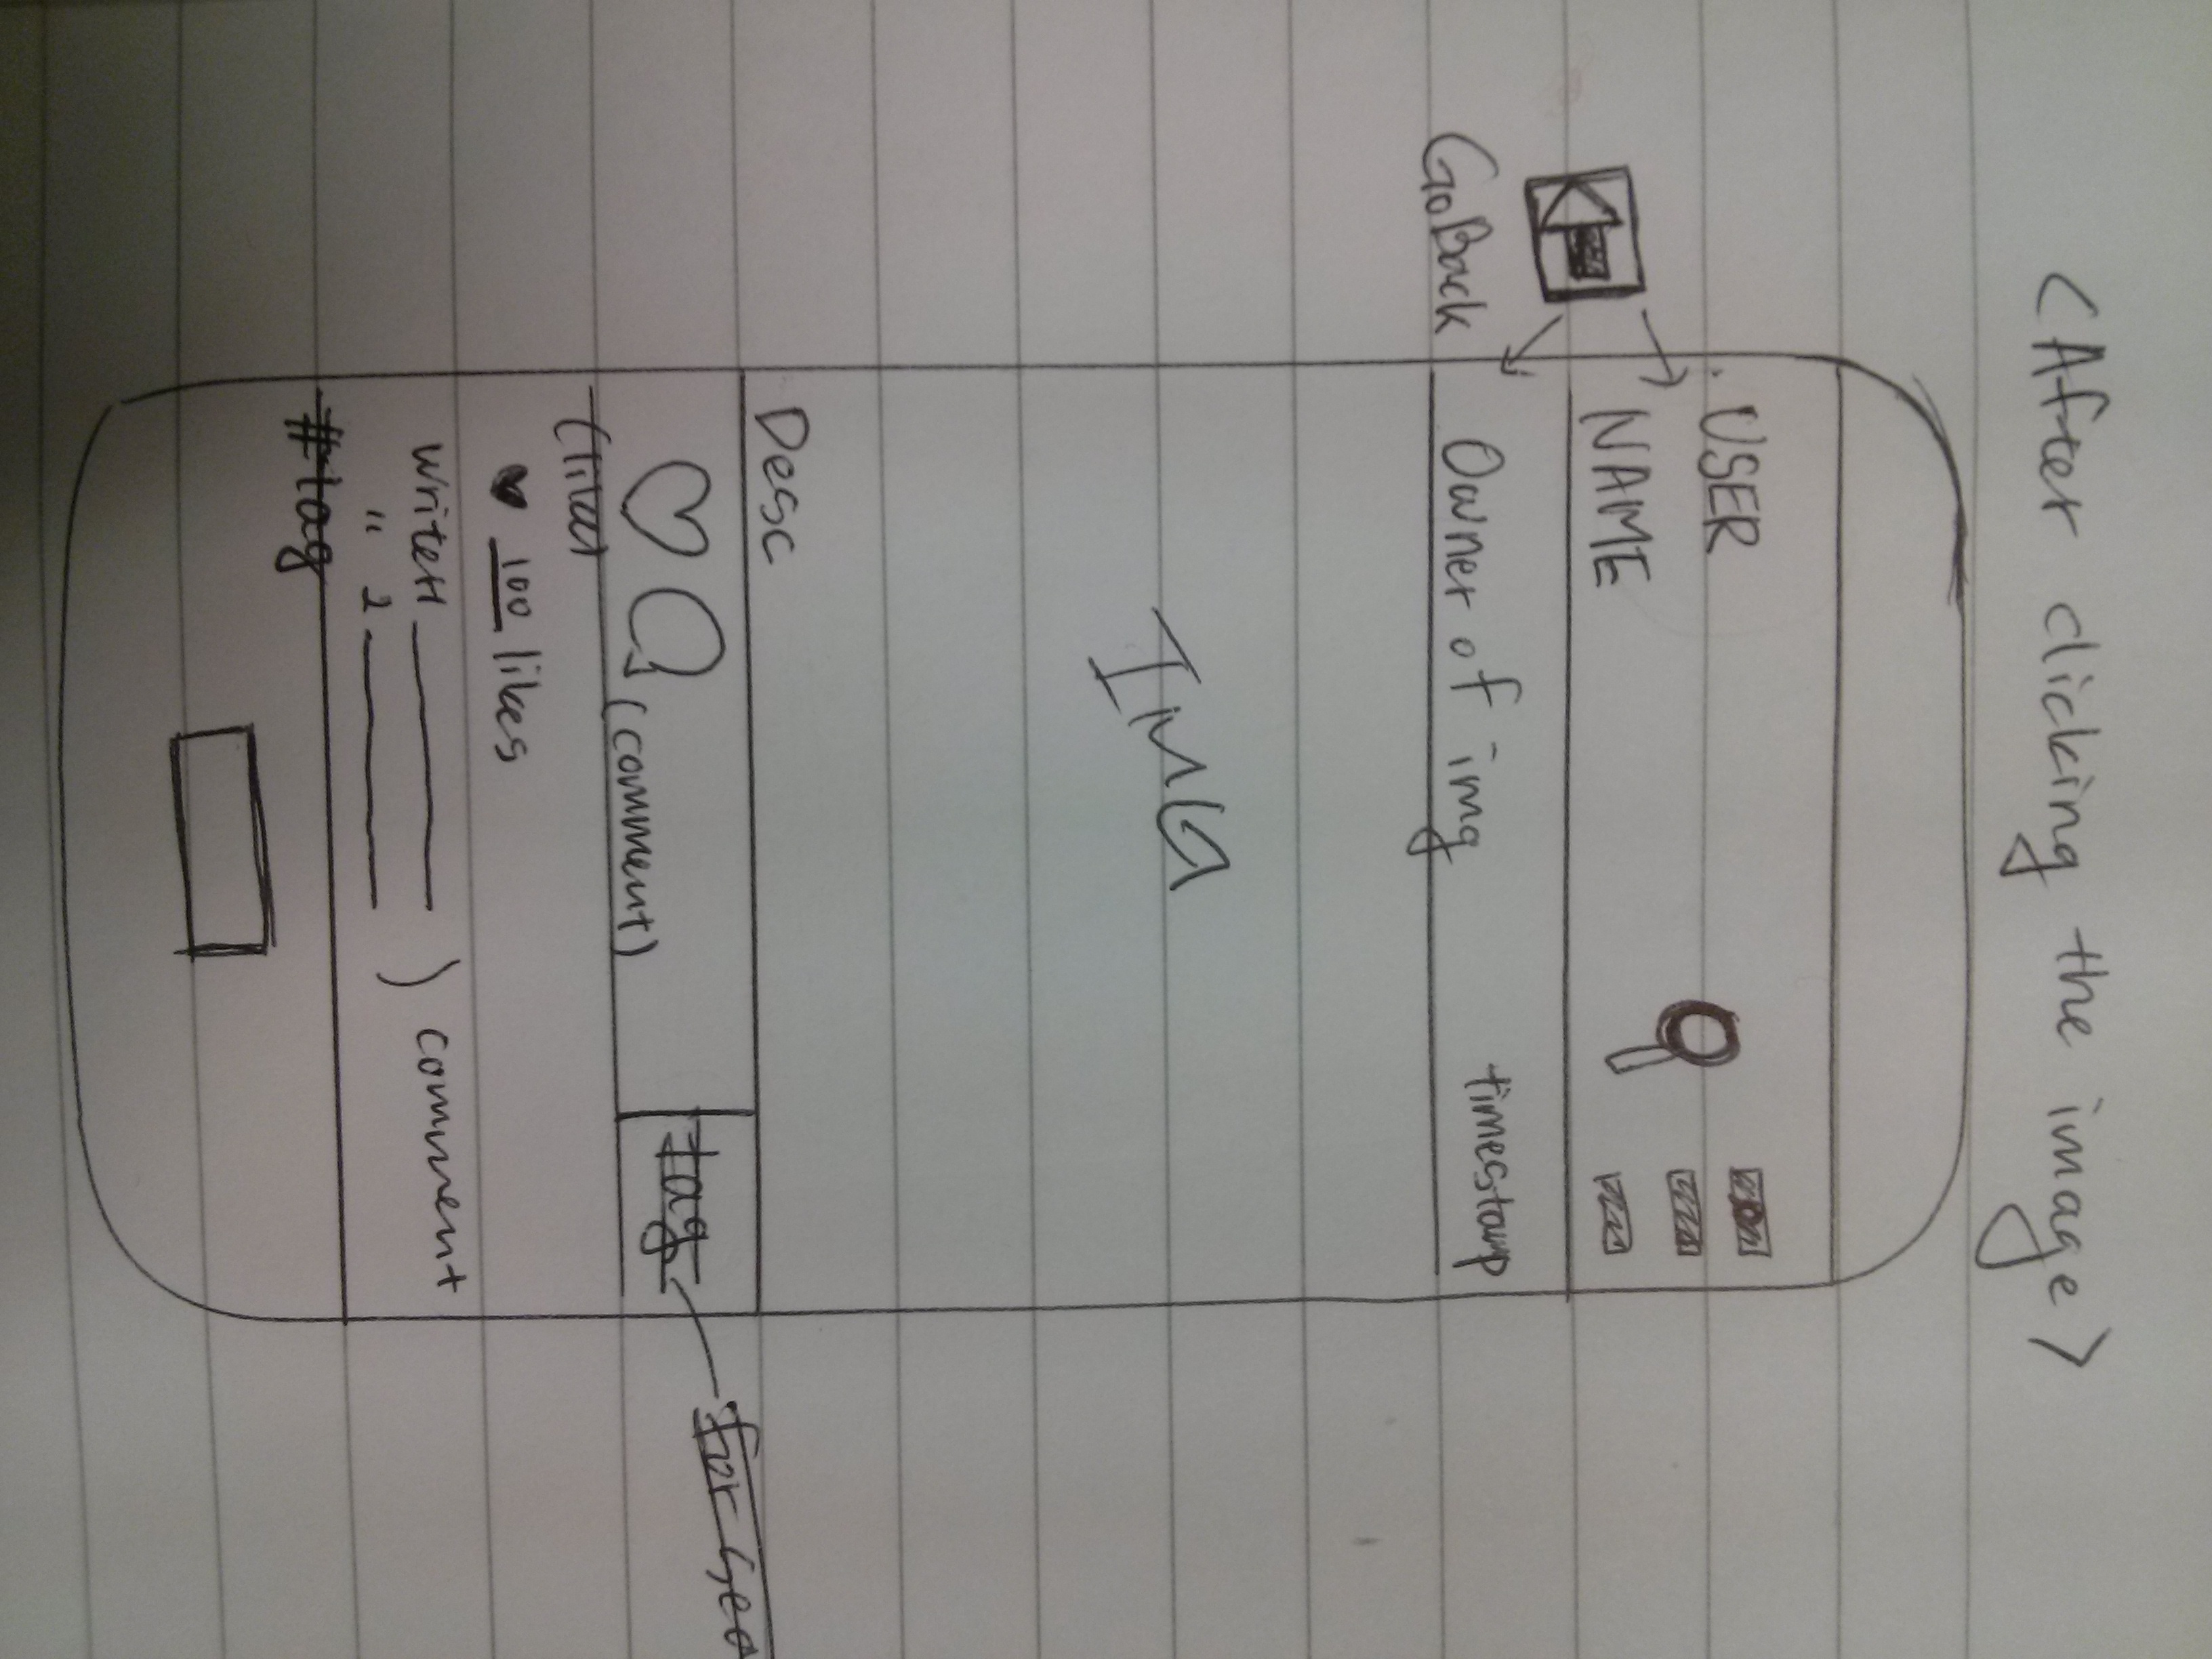 <After clicking the image>
USER
NAME
GoBack
Owner of img timestamp
IMG
Desc
tag for
(comment)
(like)
100 likes
writer1 comment
" 2
#tag